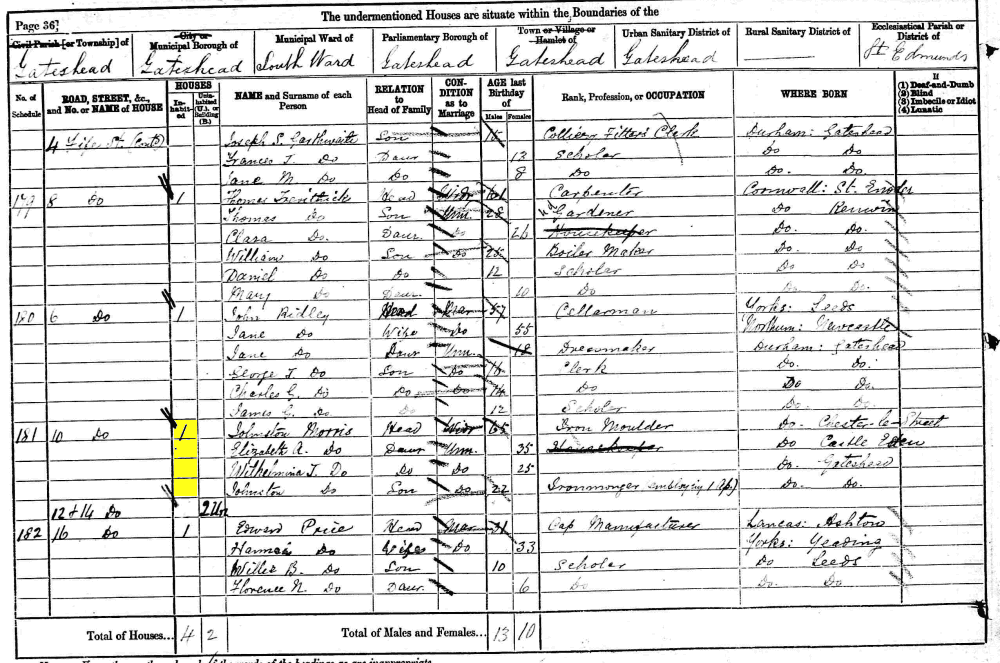 The undermentioned Houses are situate within the Boundaries of the
Page 36]
Civil Parish [or Township] of
Gateshead
City or Municipal Borough of
Gateshead
Municipal Ward of
South Ward
Parliamentary Borough of
Gateshead
Town or Village or Hamlet of
Gateshead
Urban Sanitary District of
Gateshead
Rural Sanitary District of
Ecclesiastical Parish or District of
St Edmunds
No. of Schedule ROAD, STREET, &c., and No. or NAME of HOUSE HOUSES In-habit-ed Unin-habited (U.), or Building (B.) NAME and Surname of each Person RELATION to Head of Family CON-DITION as to Marriage AGE last Birthday of Males Females Rank, Profession, or OCCUPATION WHERE BORN If (1) Deaf-and-Dumb (2) Blind (3) Imbecile or Idiot (4) Lunatic
4 Fife St (Contd) Joseph S. Garthwaite Son 15 Colliery Fitters Clerk Durham: Gateshead
Frances J. Do Daur 13 Scholar Do Do
Jane M. Do Do 8 Do Do. Do.
179 8 Do 1 Thomas Head Widr 61 Carpenter Cornwall: St.
Thomas Do Son Unm. 28 Gardener Do Kenwin
Clara Do. Daur Do 26 Housekeeper Do. Do.
William Do Son Do 25 Boiler Maker Do. Do.
Daniel Do Do 12 Scholar Do Do
Mary Do Daur. 10 Do Do Do
180 6 Do 1 John Ridley Head Mar 57 Cellarman Yorks: Leeds
Jane Do Wife Do 55 Northum: Newcastle
Jane Do Daur Unm. 18 Dressmaker Durham: Gateshead
George J. Do Son Do 16 Clerk Do. Do.
Charles G. Do Do Do 14 Do Do Do.
James G. Do. Do 12 Scholar Do. Do.
181 10 Do 1 Johnston Morris Head Widr 65 Iron Moulder Do. Chester-le-Street
Elizabeth A. Do Daur Unm. 35 Housekeeper Do Castle Eden
Wilhelmina J. Do Do Do 25 Do. Gateshead
Johnston Do Son Do 22 Ironmonger employing 1 Do. Do.
12 & 14 Do 2 U
182 16 Do 1 Edward Price Head Mar 31 Cap Manufacturer Lancas: Ashton
Hannah Do Wife Do 33 Yorks: Yeading
Willie B. Do Son 10 Scholar Do Leeds
Florence N. Do Daur. 6 Do Do. Do
Total of Houses... 4 2 Total of Males and Females... 13 10